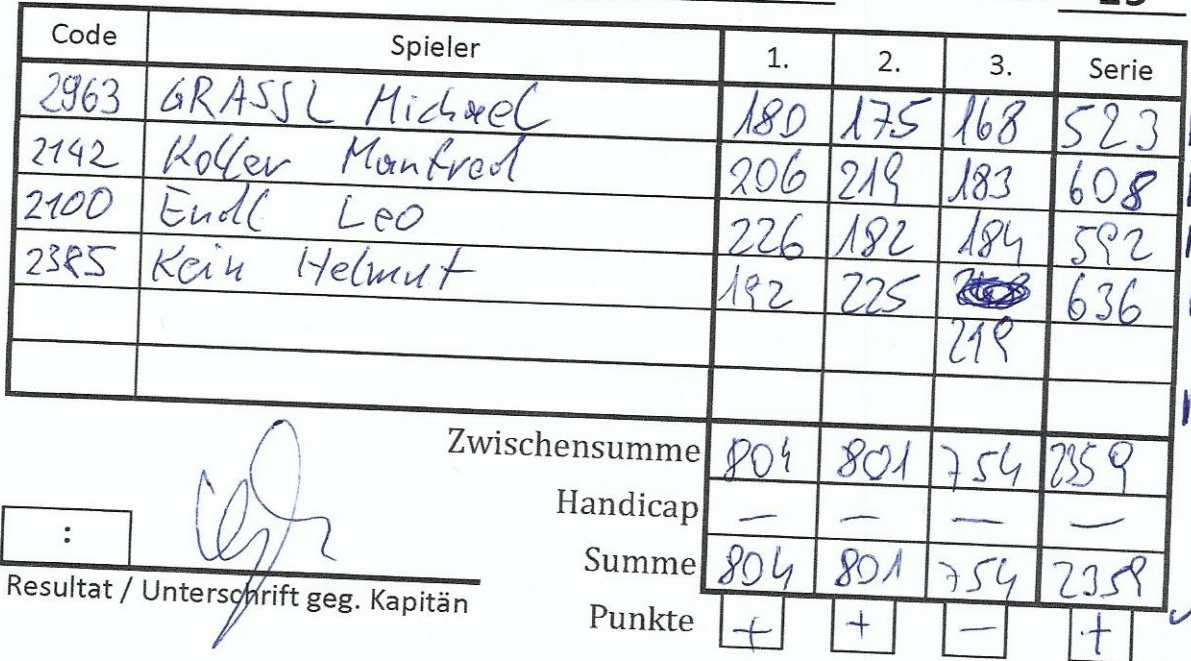 Code Spieler 1. 2. 3. Serie
2963 GRASSL Michael 180 175 168 523
2142 Koller Manfred 206 219 183 608
2100 Endl Leo 226 182 184 592
2385 Kein Helmut 192 225 636
219
Zwischensumme 804 801 754 2359
Handicap — — — —
: Summe 804 801 754 2359
Resultat / Unterschrift geg. Kapitän
Punkte + + — +